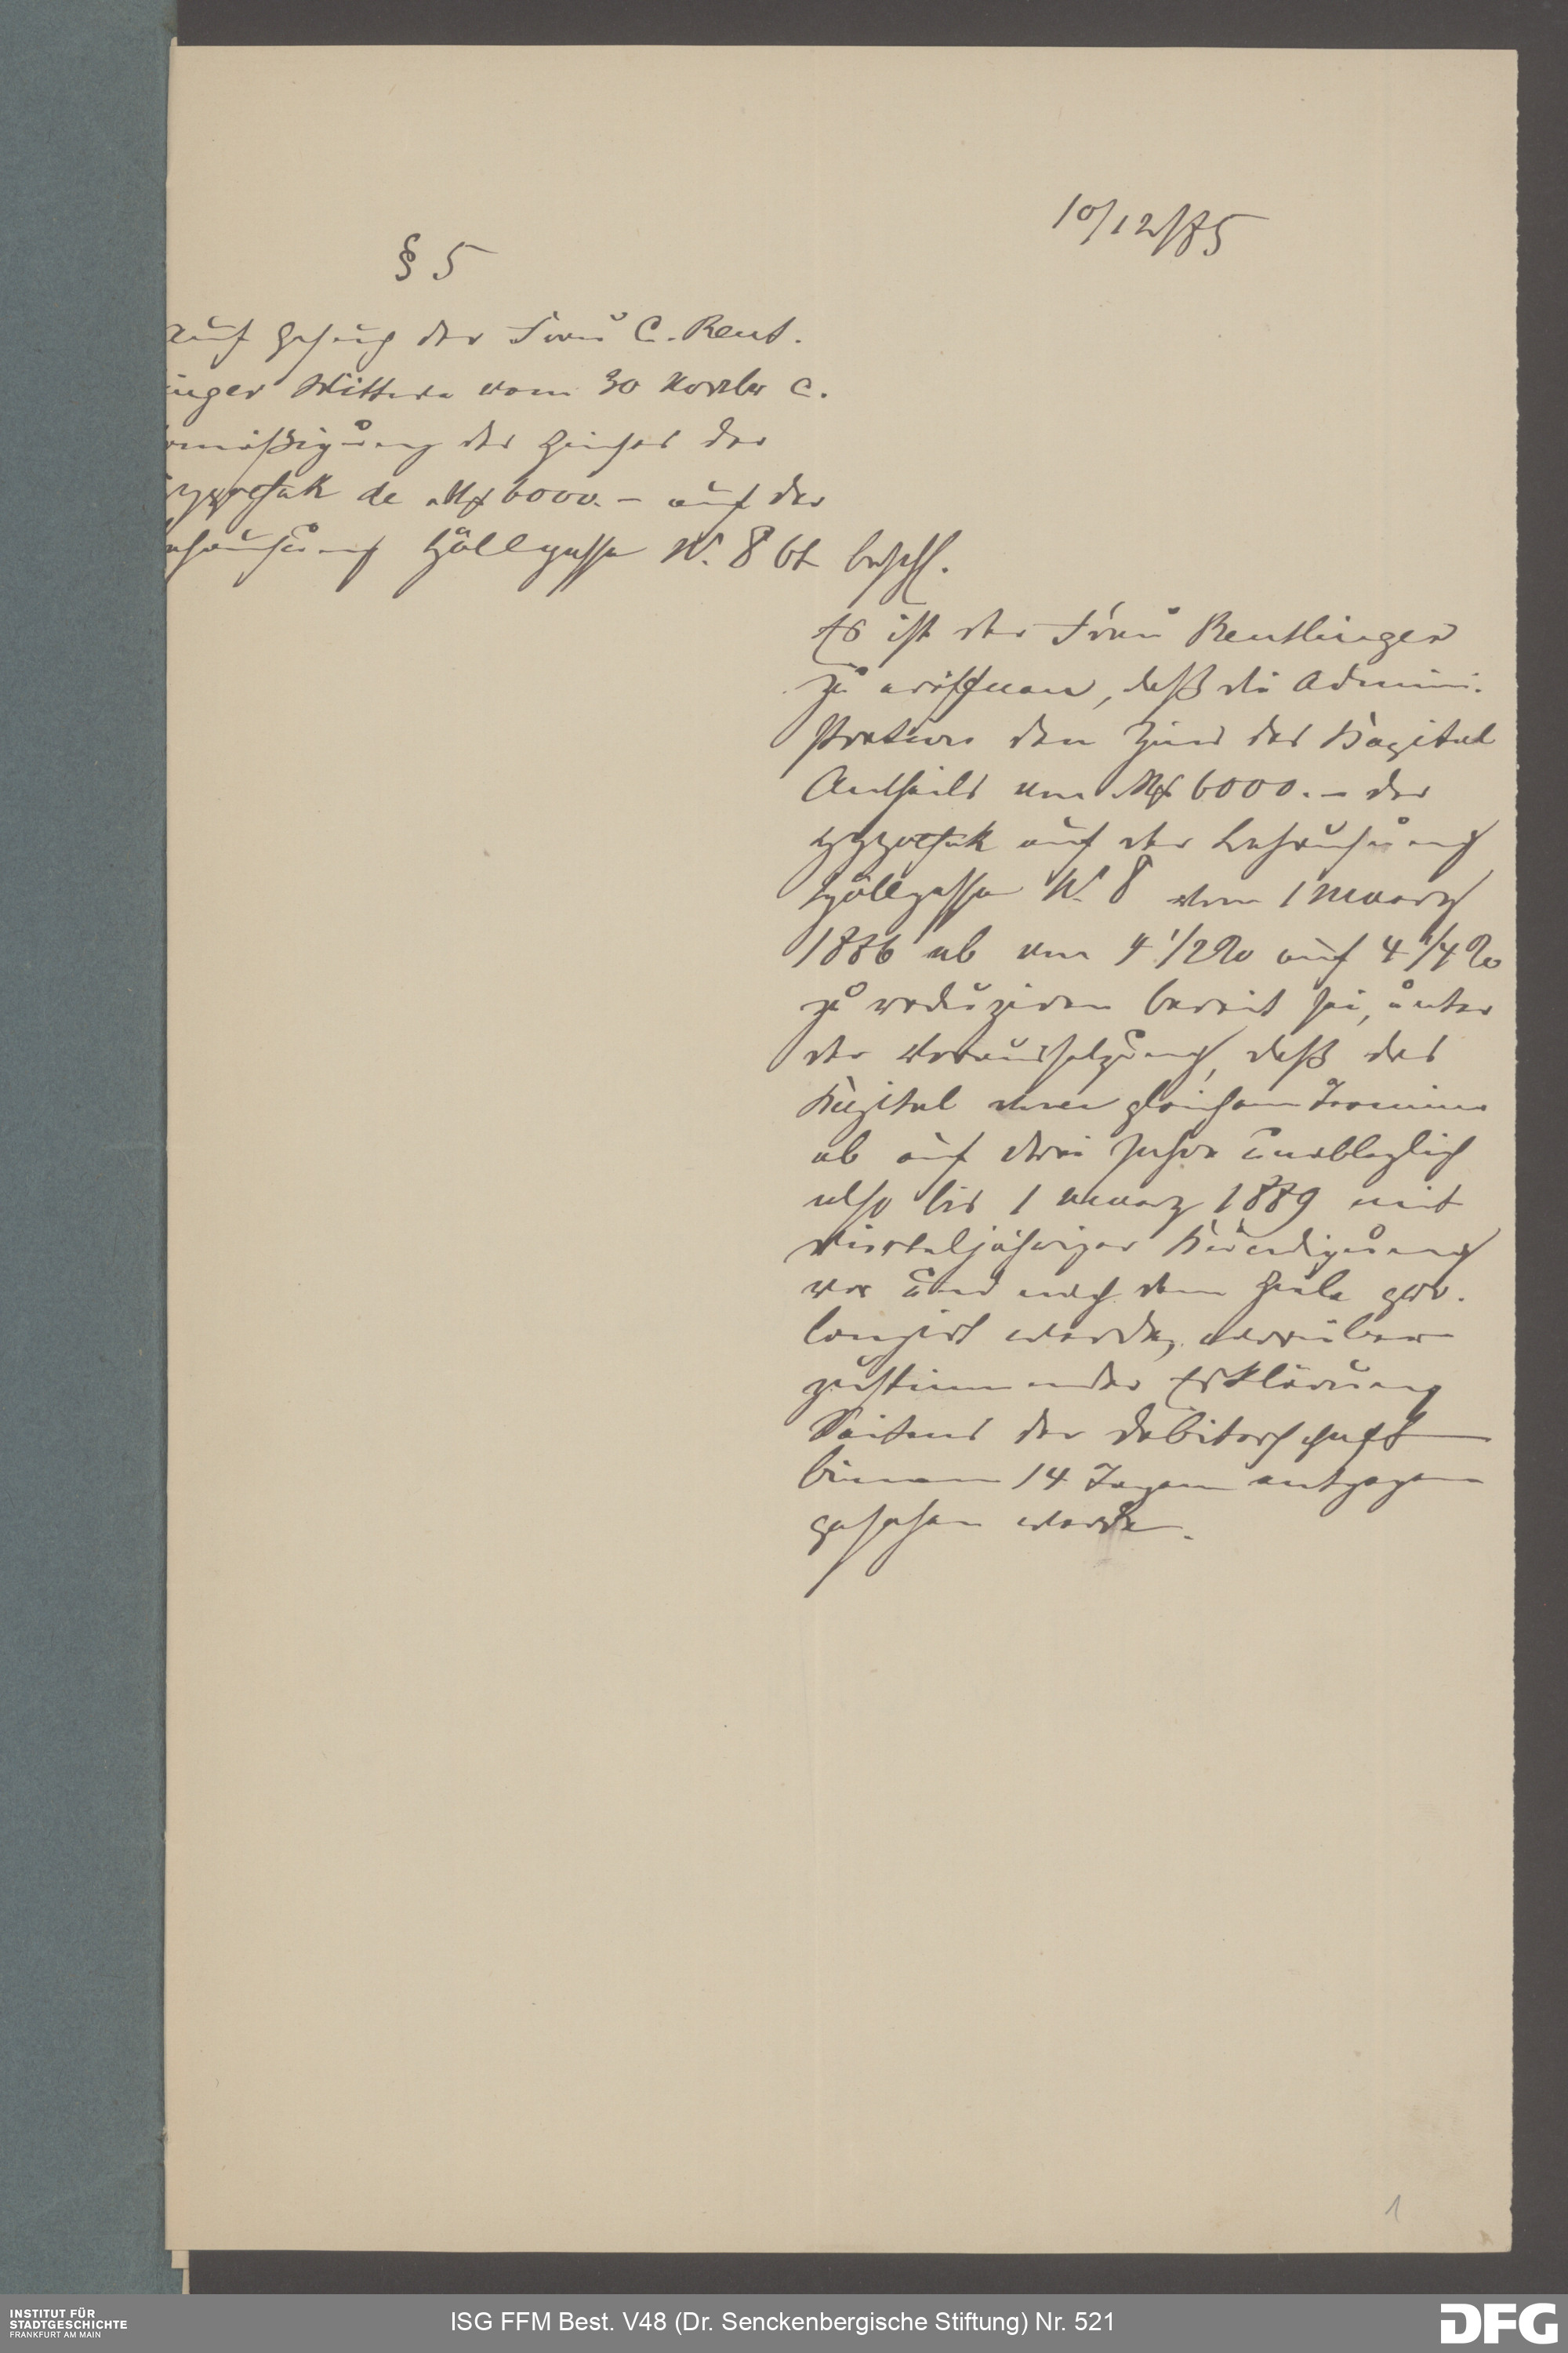 10/12/85
§ 5
auf Gesuch der Frau C. Reut-
inger Wittwe vom 30 Novbr c.
rmäßigung des Zinses der
ypothek de M 6000.- auf der
ehausung Höllgasse N. 8 bt beschl.
Es ist der Frau Reutlinger
zu eröffnen, daß die Admini-
stration den Zins des Kapital
Antheils von M 6000.- der
Hypothek auf der Behausung
Höllgasse N. 8 vom 1 Maerz
1886 ab von 4 1/2 % auf 4 1/4 %
zu reduziren bereit sei, unter
der Voraussetzung, daß das
Kapital vom gleichen Termine
ab auf drei Jahre unableglich
also bis 1 Maerz 1889 mit
vierteljähriger Kündigung
vor und nach dem Ziele pro-
longirt werde, worüber
zustimmender Erklärung
Seitens der Debitorschaft
binnen 14 Tagen entgegen
gesehen werde.
1
INSTITUT FÜR
STADTGESCHICHTE
FRANKFURT AM MAIN
ISG FFM Best. V48 (Dr. Senckenbergische Stiftung) Nr. 521
DFG